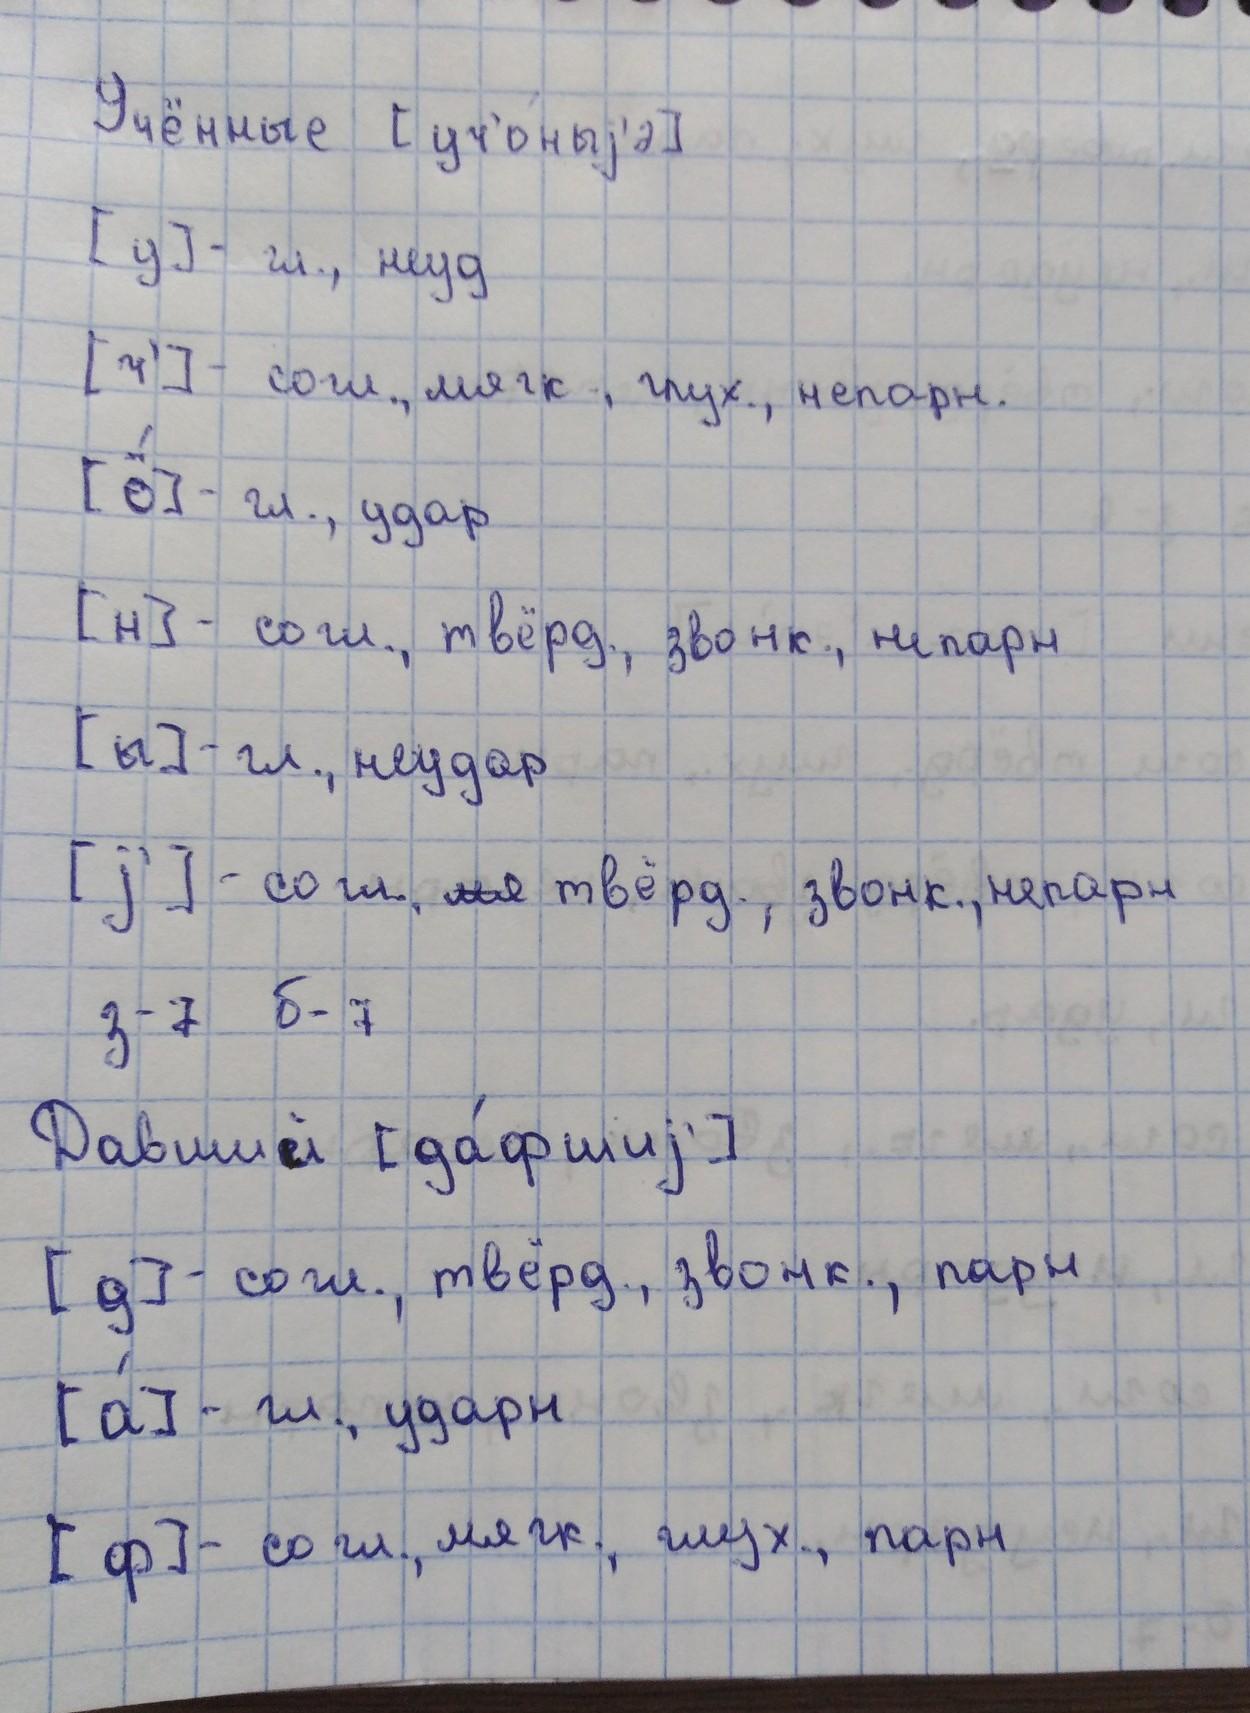 Учённые [уч'о́ныј'э]
[у]- гл., неуд
[ч']- согл., мягк., глух., непарн.
[о́]- гл., удар
[н]- согл., твёрд., звонк., непарн
[ы]- гл., неудар
[ј']- согл., мя твёрд., звонк., непарн
з-7 б-7
Давший [да́фшиј']
[д]- согл., твёрд., звонк., парн
[а́]- гл., ударн
[ф]- согл., мягк., глух., парн